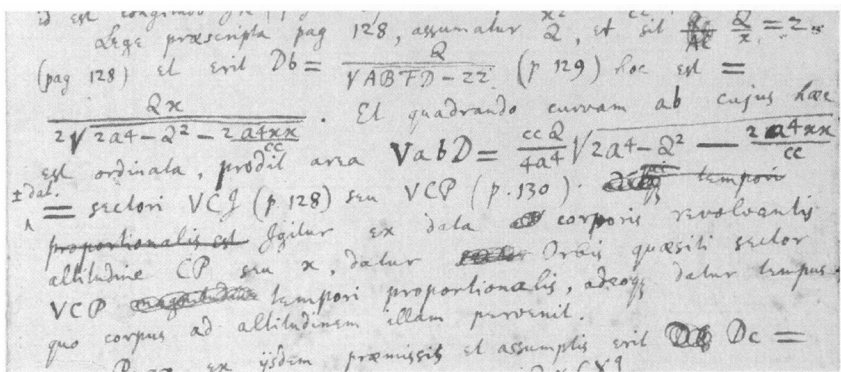 id est
Lege præscripta pag 128, assumatur Q, et sit Q/x = z.
(pag 128) et erit Db = Q / √ABFD − zz (p 129) hoc est =
Qx / 2√2a4 − Q² − 2a4xx/cc . Et quadrando curvam ab cujus hæc
est ordinata, prodit area VabD = ccQ/4a4 √2a4 − Q² − 2a4xx/cc
± dat.
= sectori VCI (p 128) seu VCP (p. 130). tempori
proportionalis est Igitur ex data corporis revolventis
altitudine CP seu x, datur Orbis quæsiti sector
VCP tempori proportionalis, adeoq; datur tempus
quo corpus ad altitudinem illam pervenit.
ex ijsdem præmissis et assumptis erit Dc =